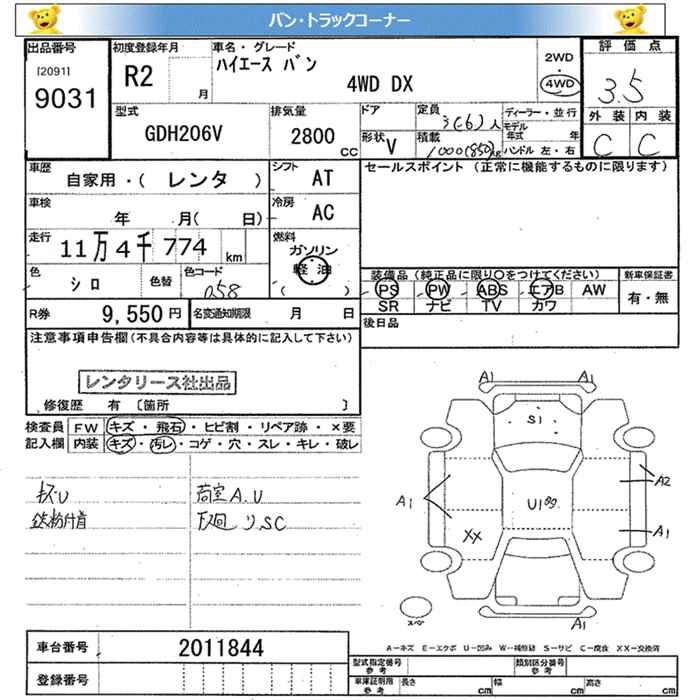 バン・トラックコーナー
出品番号
[2091]
9031
初度登録年月
R2
月
車名・グレード
ハイエース バン
4WD DX
2WD
・
4WD
評価点
3.5
外装 内装
C C
型式
GDH206V
排気量
2800
CC
ドア
形状
V
定員
3(6)人
積載
1000(850)kg
ディーラー・並行
モデル年式 年
ハンドル 左・右
車歴
自家用・( レンタ )
シフト
AT
車検
年 月( 日)
冷房
AC
走行
11万4千774 km
燃料
ガソリン
軽油
( )
色
シロ
色替
色コード
058
R券
9,550円
名変通知期限
月 日
セールスポイント(正常に機能するものに限ります)
装備品(純正品に限り○をつけてください)
PS PW ABS エアB AW
SR ナビ TV カワ
新車保証書
有・無
後日品
注意事項申告欄(不具合内容等は具体的に記入して下さい)
レンタリース社出品
修復歴 有〔箇所 〕
検査員記入欄
FW キズ・飛石・ヒビ割・リペア跡・×要
内装 キズ・汚レ・コゲ・穴・スレ・キレ・破レ
キズU
鉄粉付着
荷室A.U
下廻リSC
A1 A1
S1
A1
U1多
A2
A1
XX
A1
スペア
A-キズ E-エクボ U-凹み W-補修跡 S-サビ C-腐食 XX-交換済
車台番号
2011844
登録番号
型式指定番号
参考
類別区分番号
参考
車庫証明用
参考
長さ cm 幅 cm 高さ cm